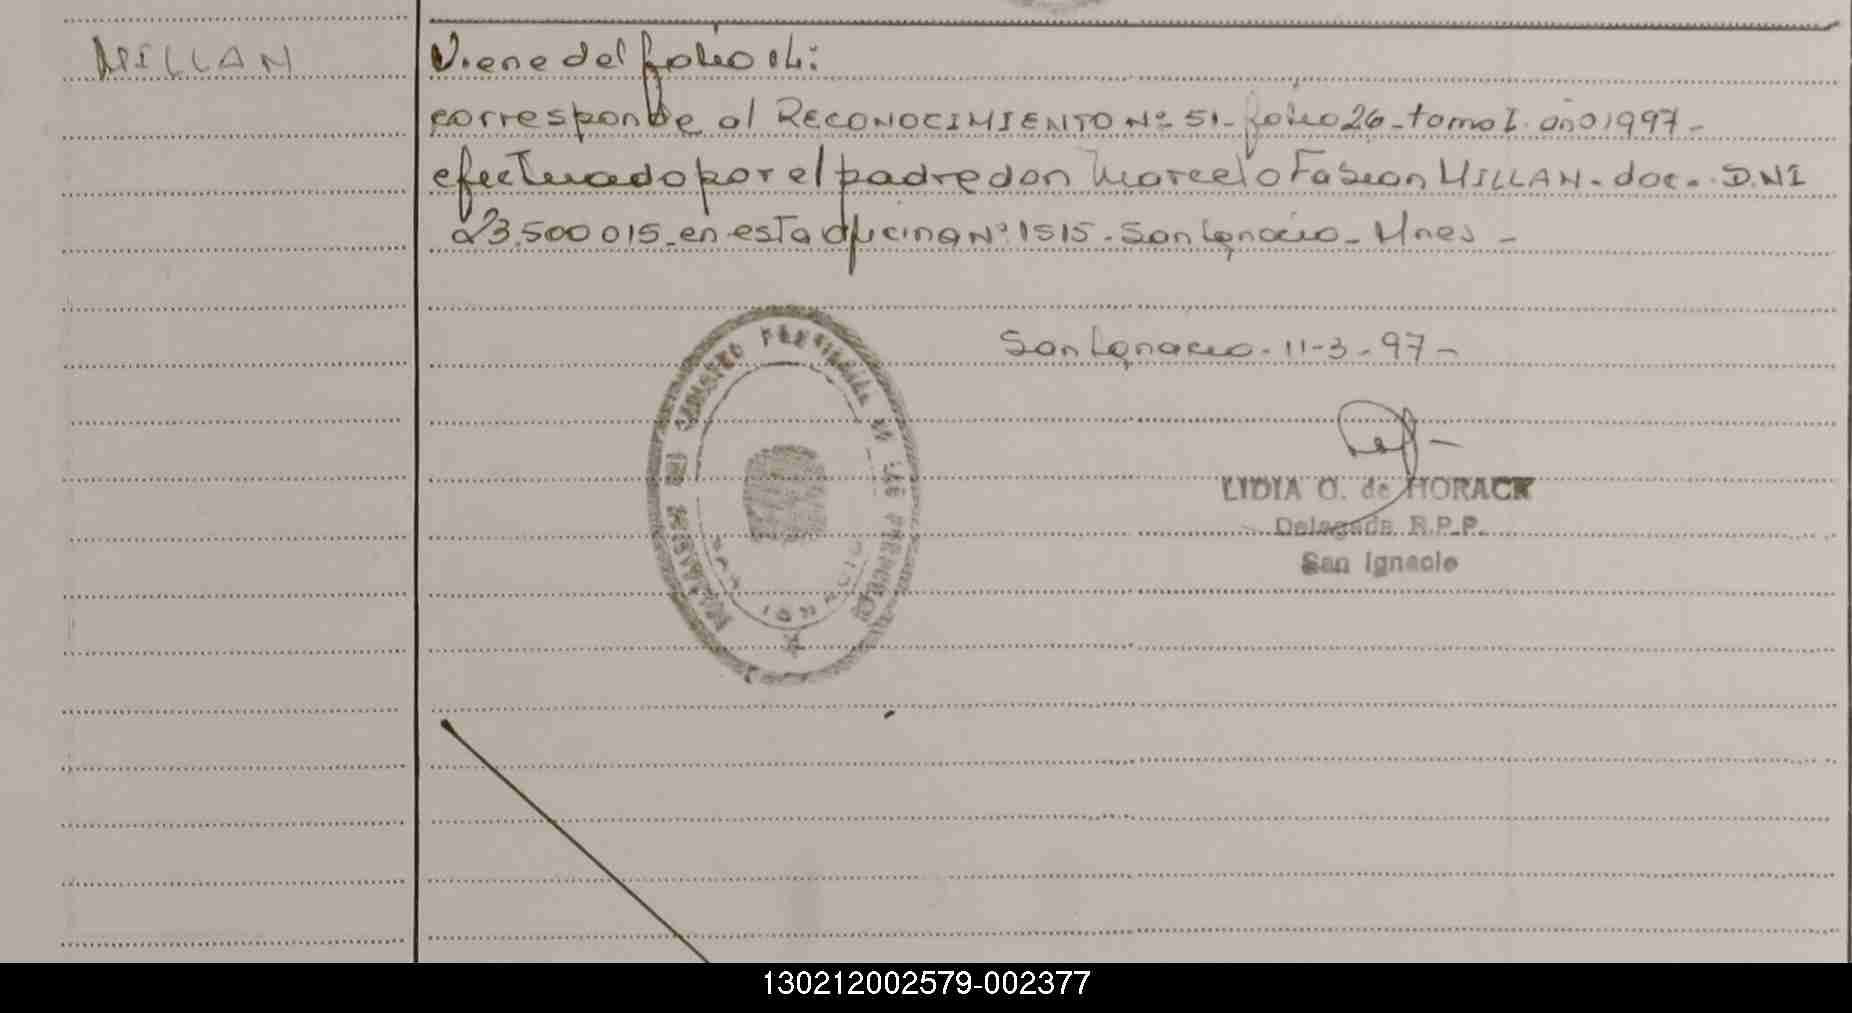 MILLAN
Viene del folio 14:
corresponde al RECONOCIMIENTO Nº 51- folio 26 - tomo I. año 1997 -
efectuado por el padre don Marcelo Fabian MILLAN - doc. - D.NI
23.500 015 - en esta oficina Nº 1515 - San Ignacio - Mnes -
San Ignacio - 11-3 - 97 -
REGISTRO PROVINCIAL DE LAS PERSONAS
SAN IGNACIO
LIDIA O. de HORACK
Delegada R.P.P.
San Ignacio
130212002579-002377